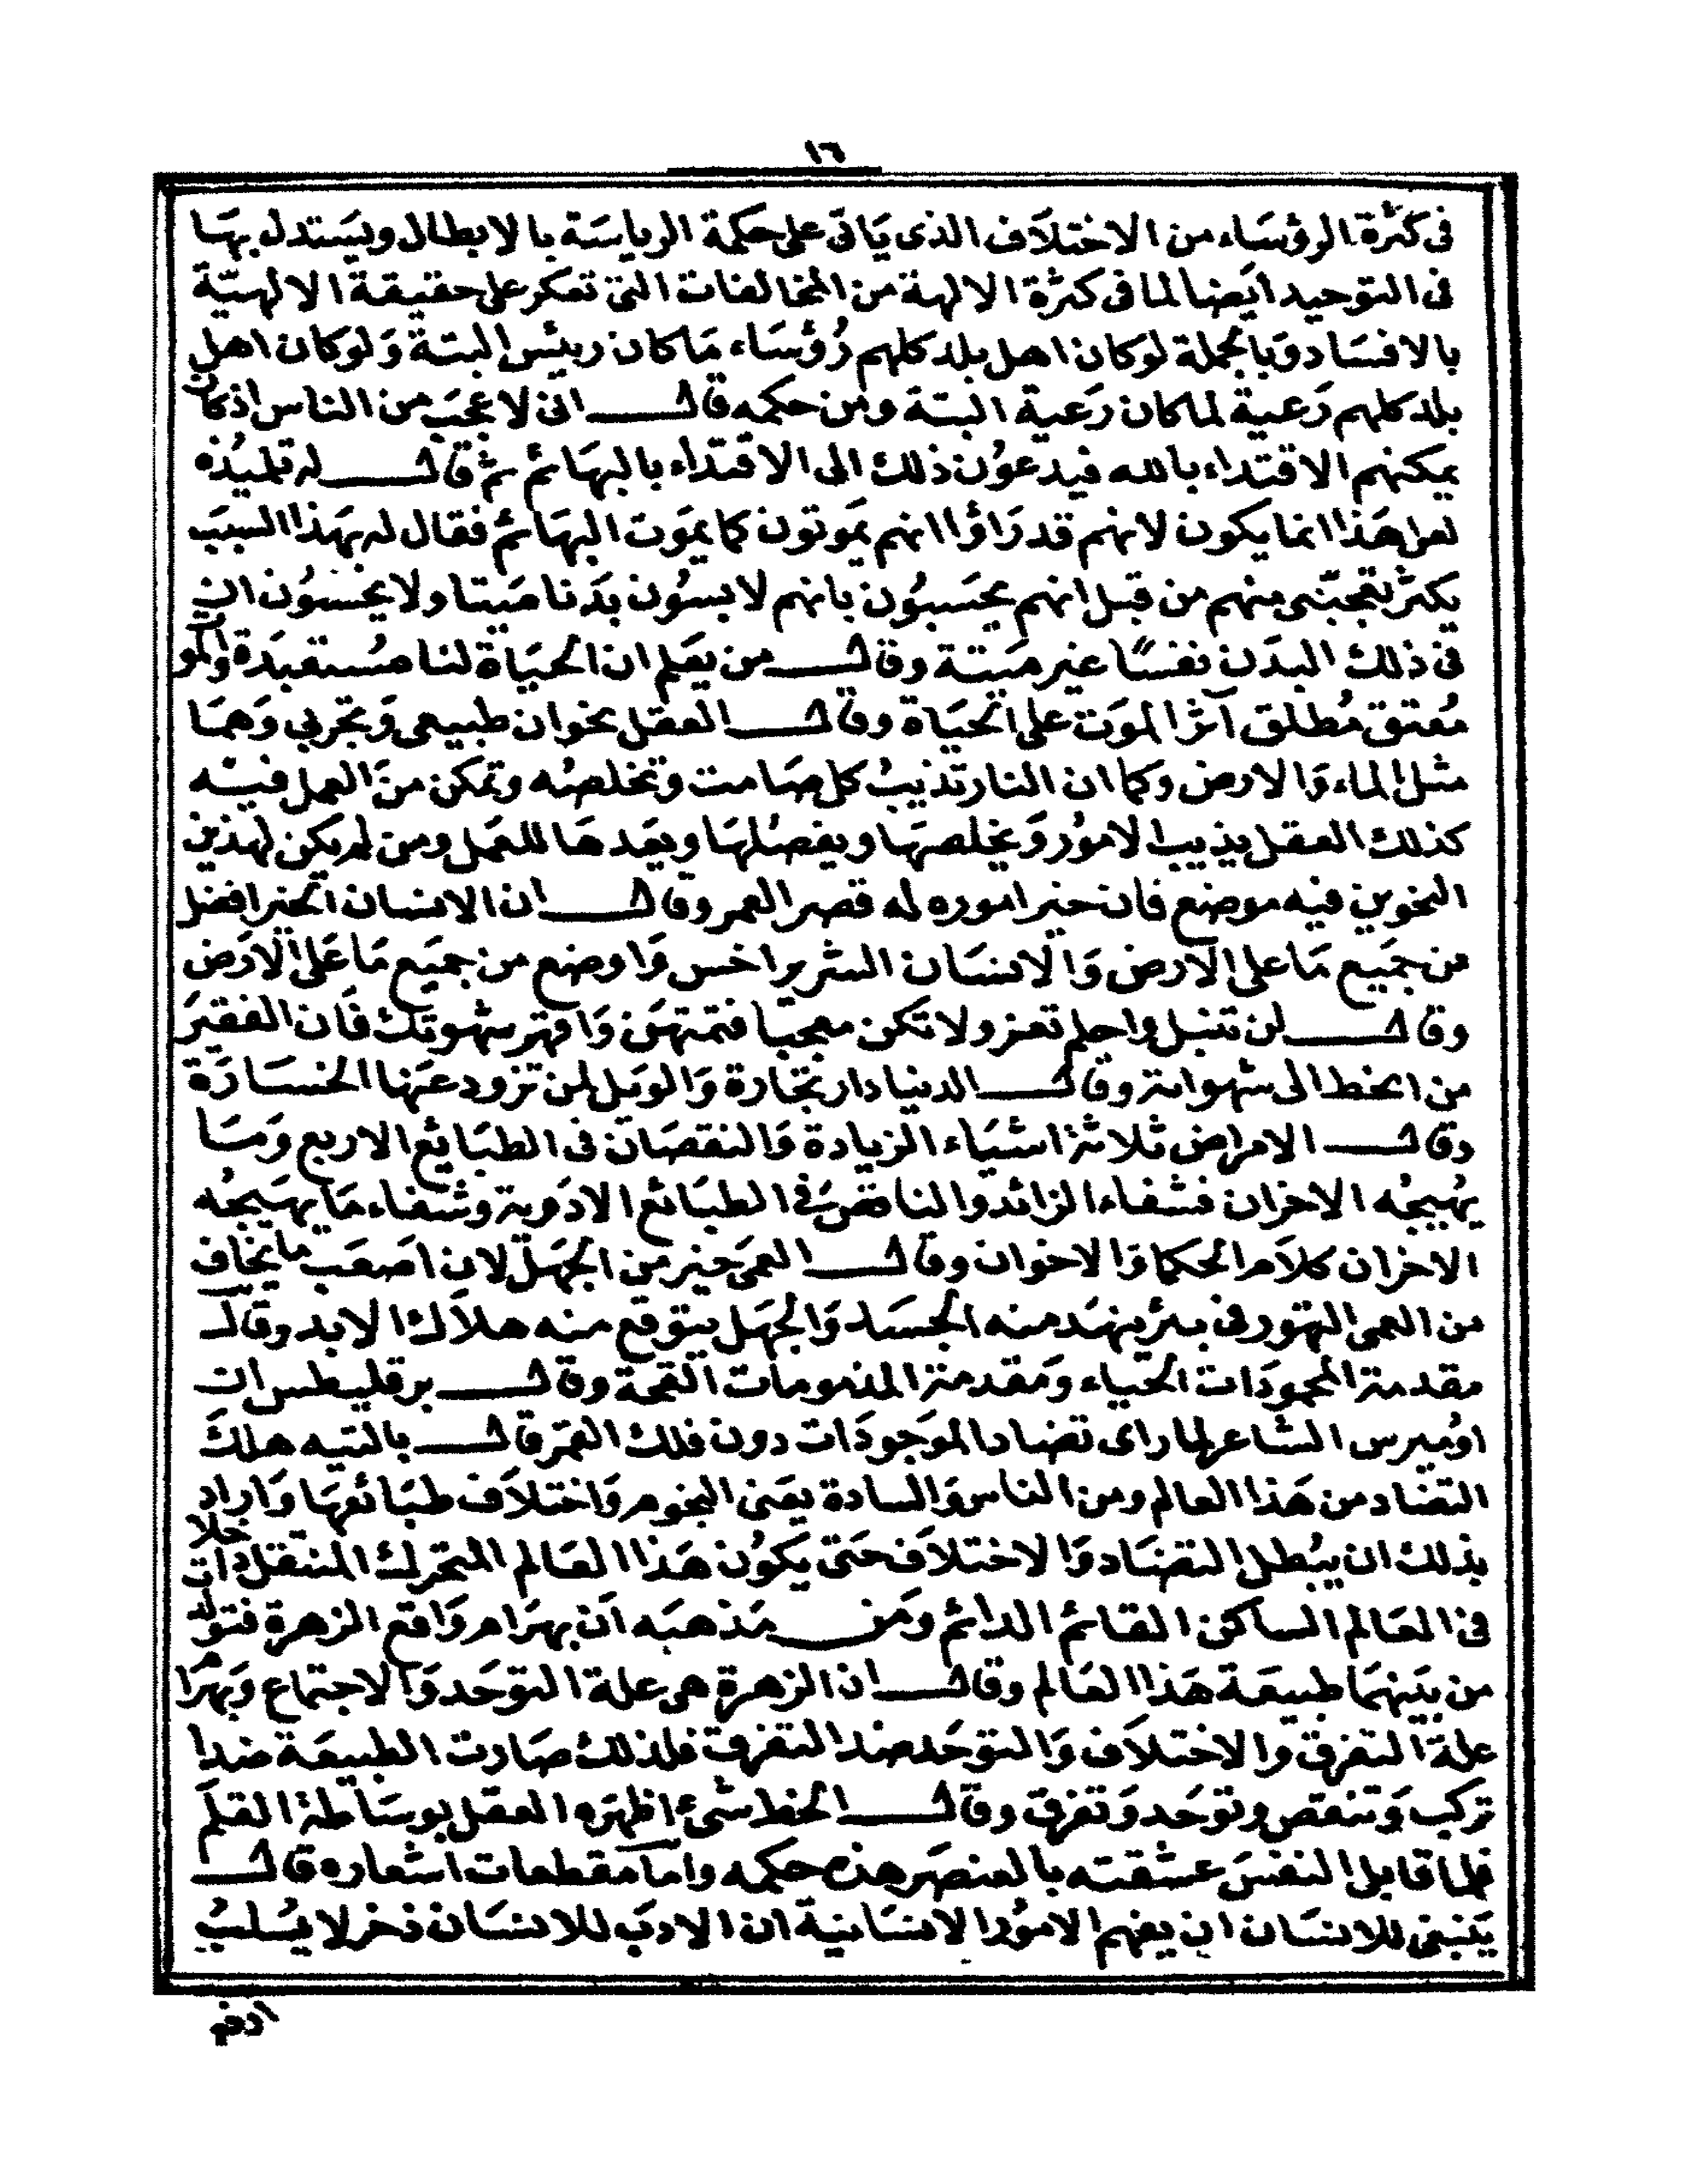 ١٦
فى كثرة الرؤساء من الاختلاف الذى ياتى على حكمة الرياسة بالابطال ويستدل بها
فى التوحيد ايضا لما فى كثرة الالهة من المخالفات التى تعكر على حقيقة الالهية
بالافساد وبالجملة لوكان اهل بلد كلهم رؤساء ماكان رييس البتة ولوكان اهل
بلد كلهم رعية لماكان رعية البتة ومن حكمه قال انى لاعجب من الناس اذكان
يمكنهم الاقتداء بالله فيدعون ذلك الى الاقتداء بالبهائم ثم قال له تلميذه
لعل هذا انما يكون لانهم قد راؤا انهم يموتون كما يموت البهائم فقال له بهذا السبب
يكثر تعجبى منهم من قبل انهم يحسبون بانهم لابسون بدنا ميتا ولا يحسون ان
فى ذلك البدن نفسا غير ميتة وقال من يعلم ان الحياة لنا مستعبدة والمو
معتق مطلق آثر الموت على الحياة وقال العقل نحوان طبيعى وتجربى وهما
مثل الماء والارض وكما ان النار تذيب كل صامت وتخلصه وتمكن من العمل فيه
كذلك العقل يذيب الامور ويخلصها ويفصلها ويعدها للعمل ومن لم يكن لهذين
النحوين فيه موضع فان خير اموره له قصر العمر وقال ان الانسان الخير افضل
من جميع ما على الارض والانسان الشرير اخس واوضع من جميع ما على الارض
وقال لن تنبل واحلم تعز ولا تكن معجبا فتمتهن واقهر شهوتك فان الفقير
من انحط الى شهواته وقال الدنيا دار تجارة والويل لمن تزود عنها الخسارة
وقال الامراض ثلاثة اشياء الزيادة والنقصان فى الطبايع الاربع وما
يهيجه الاحزان فشفاء الزائد والناقص فى الطبائع الادوية وشفاء ما يهيجه
الاحزان كلام الحكما والاخوان وقال العمى خير من الجهل لان اصعب ما يخاف
من العمى التهور فى بئر ينهد منه الجسد والجهل يتوقع منه هلاك الابد وقال
مقدمة المحمودات الحياء ومقدمة المذمومات القحة وقال برقليطس ان
اوميرس الشاعر لما راى تضاد الموجودات دون فلك القمر قال ياليته هلك
التضاد من هذا العالم ومن الناس والسادة يعنى النجوم واختلاف طبائعها واراد
بذلك ان يبطل التضاد والاختلاف حتى يكون هذا العالم المتحرك المنتقل داخلا
فى العالم الساكن القائم الدائم ومن مذهبه ان بهرام واقع الزهرة فتولد
من بينهما طبيعة هذا العالم وقال ان الزهرة هى علة التوحد والاجتماع وبهرام
علة التفرق والاختلاف والتوحد ضد التفرق فلذلك صارت الطبيعة ضدا
تركب وتنقص وتوحد وتفرق وقال الخط شئ اظهره العقل بوساطة القلم
فلما قابل النفس عشقته بالعنصر هذه حكمه واما مقطعات اشعاره قال
ينبغى للانسان ان يفهم الامور الانسانية ان الادب للانسان ذخر لا يسلب
ادفع